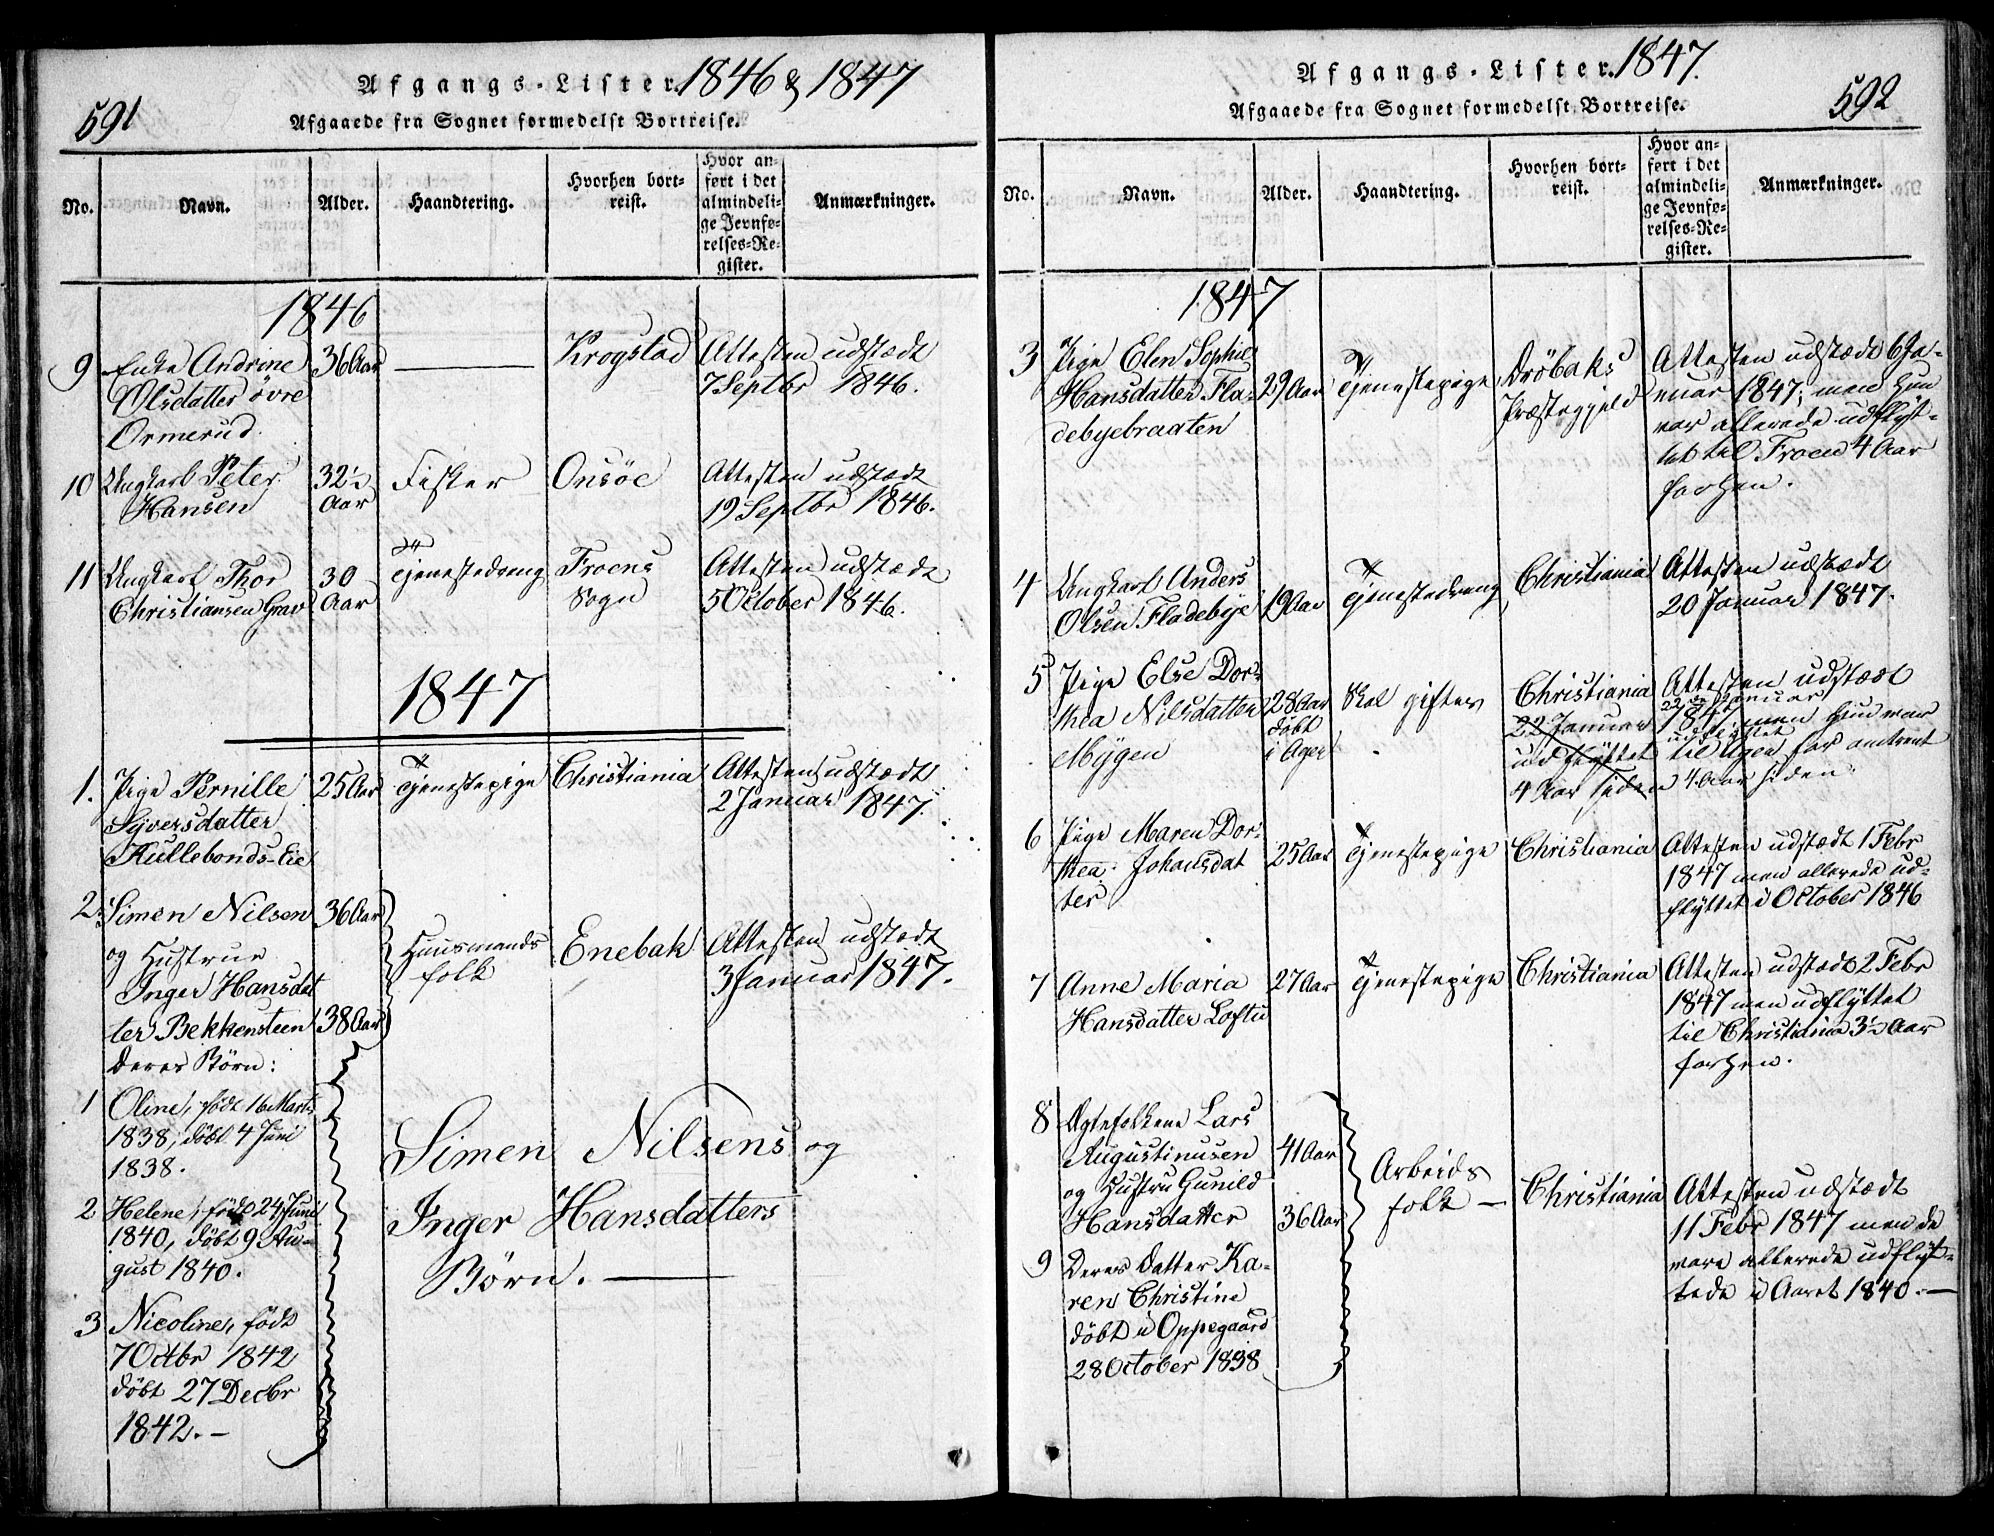 591
Afgangs-Lister. 1846 & 1847
Afgaaede fra Sognet formedelst Bortreise.
No.
Navn.
Alder.
Haandtering.
Hvorhen bort-
reist.
Hvor an-
ført i det
almindeli-
ge Jevnfø-
relses-Re-
gister.
Anmærkninger.
1846
9
Enke Andrine
Olsdatter övre
Ormerud.
36 Aar
Krogstad
Attesten udstædt
7 Septbr 1846.
10
Ungkarl Peter
Hansen
32½
Aar
Fisker
Onsöe
Attesten udstædt
19 Septbr 1846.
11
Ungkarl Thor
Christiansen Grav
30
Aar
Tjenestedreng
Froens
Sogn
Attesten udstædt
5 October 1846.
1847
1.
Pige Pernille
Syversdatter
Kullebonds-Eie
25 Aar
Tjenestepige
Christiania
Attesten udstædt
2 Januar 1847.
2.
Simen Nilsen
og Hustrue
Inger Hansdat
ter Bekkensteen
Deres Börn:
36 Aar
38 Aar
Huusmands
folk
Enebak
Attesten udstædt
3 Januar 1847.
1
Oline, födt 16 Marts
1838, döbt 4 Juni
1838.
2
Helene, födt 24 Juni
1840, döbt 9 Au-
gust 1840.
3
Nicoline, födt
7 Octbr 1842
döbt 27 Decbr
1842.-
Simen Nilsens og
Inger Hansdatters
Börn.
Afgangs-Lister. 1847.
592
Afgaaede fra Sognet formedelst Bortreise.
No.
Navn.
Alder.
Haandtering.
Hvorhen bort-
reist.
Hvor an-
ført i det
almindeli-
ge Jevnfø-
relses-Re-
gister.
Anmærkninger.
1847
3
Pige Elen Sophie
Hansdatter Fla-
debyebraaten
29 Aar
Tjenestepige
Dröbaks
Præstegjeld
Attesten udstædt 6 Ja-
nuar 1847, men hun
var allerede udflyt-
tet til Froen 4 Aar
forhen.
4
Ungkarl Anders
Olsen Fladebye
19 Aar
Tjenestedreng
Christiania
Attesten udstædt
20 Januar 1847.
5
Pige Else Dor-
thea Nilsdatter
Mygen
28 Aar
döbt
i Ager
Skal giftes
Christiania
22 Januar
udflyttet
4 Aar siden
Attesten udstædt
22 Januar
1847 men hun var
udflyttet
til Ager for omtrent
4 Aar siden.
6
Pige Maren Dor-
thea Johansdat
ter
25 Aar
Tjenestepige
Christiania
Attesten udstædt 1 Febr
1847 men allerede ud-
flyttet i October 1846
7
Anne Maria
Hansdatter Loftu
27 Aar
Tjenestepige
Christiania
Attesten udstædt 2 Febr
1847 men udflyttet
til Christiania 3½ Aar
forhen.
8
Ægtefolkene Lars
Augustinusen
og Hustru Gunild
Hansdatter
41 Aar
36 Aar
Arbeids
folk -
Christiania
Attesten udstædt
11 Febr 1847 men de
vare allerede udflyt-
tede i Aaret 1840.-
9
Deres datter Ka-
ren Christine
döbt i Oppegaard
28 October 1838